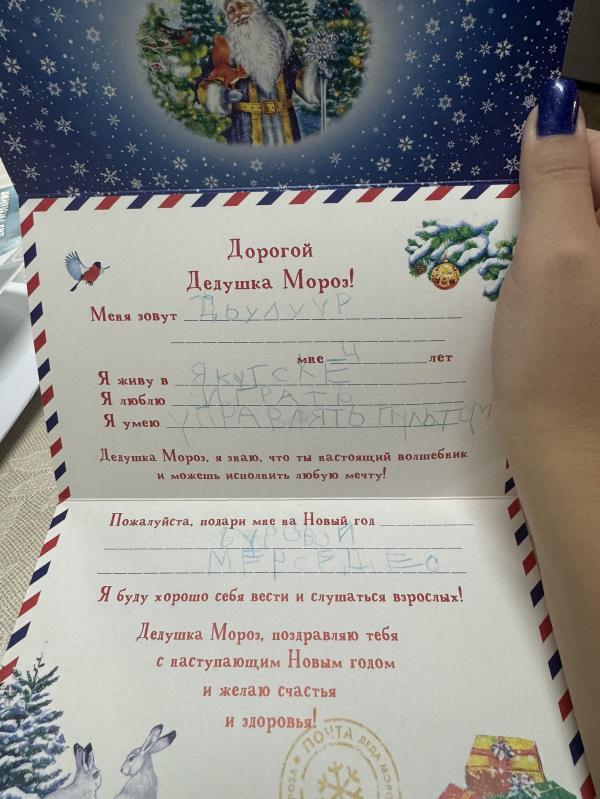 Дорогой
Дедушка Мороз!
Меня зовут Дьулуур
мне 4 лет
Я живу в ЯКУТСКЕ
Я люблю ИГРАТЬ
Я умею УПРАВЛЯТЬ ПУЛЬТОМ
Дедушка Мороз, я знаю, что ты настоящий волшебник
и можешь исполнить любую мечту!
Пожалуйста, подари мне на Новый год
БУРОВОЙ
МЕРСЕДЕС
Я буду хорошо себя вести и слушаться взрослых!
Дедушка Мороз, поздравляю тебя
с наступающим Новым годом
и желаю счастья
и здоровья!
ПОЧТА ДЕДА МОРОЗА